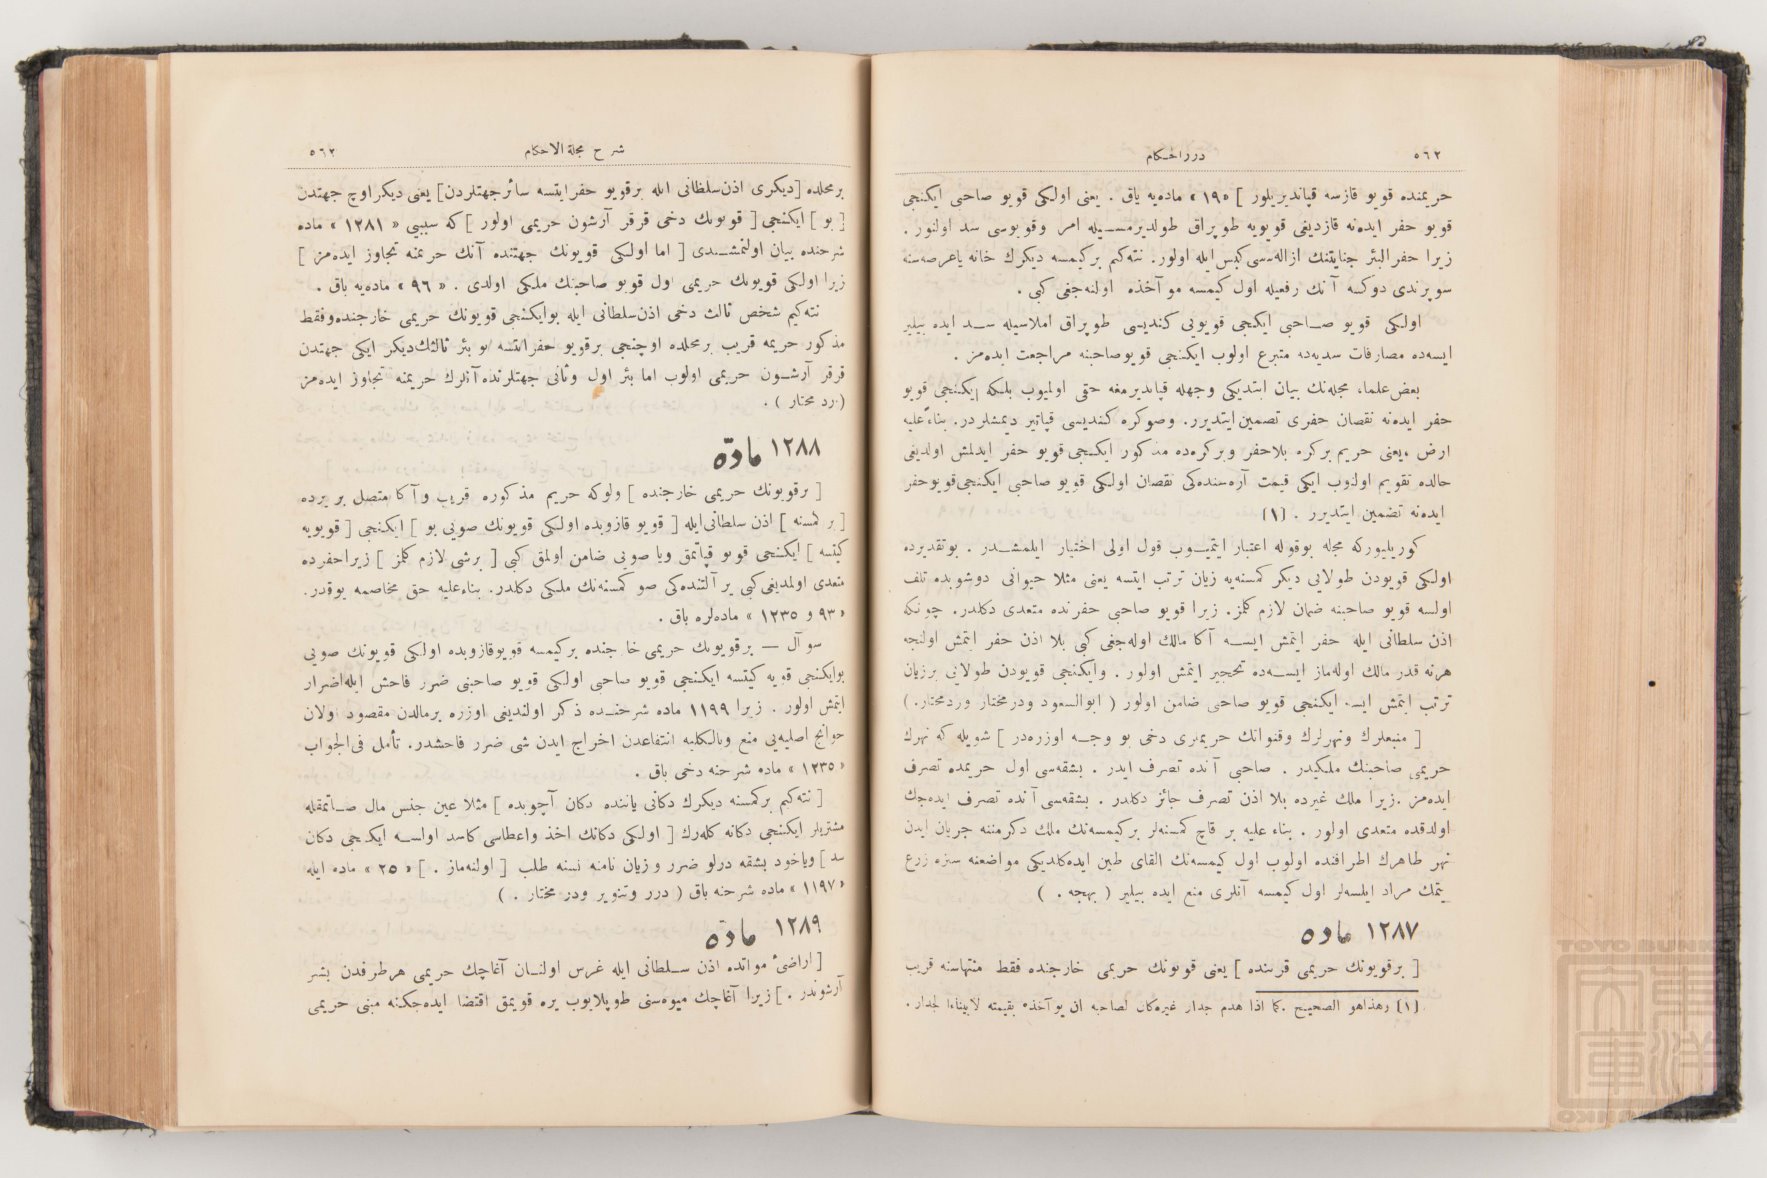 ٥٦٢
دررالحكام
حريمنده قويو قازسه قپانديريلور ] «١٩» ماده‌يه باق . يعنى اولكى قويو صاحبى ايكنجى
قويو حفر ايدنه قازديغى قويويه طوپراق طولديرمسـيله امر وقويوسى سد اولنور .
زيرا حفرالبئر جنايتنك ازاله‌سى كبس ايله اولور. نته‌كيم بركيمسه ديكرك خانه ياعرصه‌سنه
سوپرندى دوكسه آنك رفعيله اول كيمسه موآخذه اولنه‌جغى كبى .
اولكى قويو صـاحبى ايكنجى قويويى كنديسى طوپراق املاسيله سـد ايده بيلير
ايسه‌ده مصارفات سديه‌ده متبرع اولوب ايكنجى قويوصاحبنه مراجعت ايده‌مز .
بعض‌علما، مجله‌نك بيان ايتديكى وجهله قپانديرمغه حقى اولميوب بلكه ايكنجى قويو
حفر ايدنه نقصان حفرى تضمين‌ايتديرر. وصوكره كنديسى قپاتير ديمشلردر. بناءًعليه
ارض ، يعنى حريم بركره بلاحفر وبركره‌ده مذكور ايكنجى قويو حفر ايدلمش اولديغى
حالده تقويم اولنوب ايكى قيمت آره‌سنده‌كى نقصان اولكى قويو صاحبى ايكنجى‌قويوحفر
ايدنه تضمين ايتديرر . (١)
كوريليوركه مجله بوقوله اعتبار ايتميـوب قول اولى اختيار ايلمشـدر . بوتقديرده
اولكى قويودن طولايى ديكر كمسنه‌يه زيان ترتب ايتسه يعنى مثلا حيوانى دوشوبده تلف
اولسه قويو صاحبنه ضمان لازم كلمز. زيرا قويو صاحبى حفرنده متعدى دكلدر. چونكه
اذن سلطانى ايله حفر ايتمش ايسـه آكا مالك اوله‌جغى كبى بلا اذن حفر ايتمش اولنجه
هرنه قدر مالك اوله‌ماز ايسـه‌ده تحجير ايتمش اولور . وايكنجى قويودن طولايى برزيان
ترتب ايتمش ايسه ايكنجى قويو صاحبى ضامن اولور ( ابوالسعود ودرمختار وردمحتار. )
[ منبعلرك ونهرلرك وقنواتك حريملرى دخى بو وجـه اوزره‌در ] شويله كه نهرك
حريمى صاحبنك ملكيدر . صاحبى آنده تصرف ايدر . بشقه‌سى اول حريمده تصرف
ايده‌مز .زيرا ملك غيرده بلا اذن تصرف جائز دكلدر . بشقه‌سى آنده تصرف ايده‌جك
اولدقده متعدى اولور . بناء عليه بر قاچ كمسنه‌لر بركيمسه‌نك ملك دكرمننه جريان ايدن
نهر طاهرك اطرافنده اولوب اول كيمسه‌نك القاى طين ايده‌كلديكى مواضعنه سبزه زرع
يتمك مراد ايلسه‌لر اول كيمسه آنلرى منع ايده بيلير ( بهجه . )
١٢٨٧ ماده
[ برقويونك حريمى قربنده ] يعنى قويونك حريمى خارجنده فقط منتهاسنه قريب
(١) وهذاهو الصحيح .كما اذا هدم جدار غيره‌كان لصاحبه ان يوآخذه بقيمته لابناء‌الجدار .
شرح مجلة الاحكام
٥٦٣
برمحلده [ديكرى اذن‌سلطانى ايله برقويو حفرايتسه سائرجهتلردن] يعنى ديكراوچ جهتدن
[ بو ] ايكنجى [ قويونك دخى قرقر آرشون حريمى اولور ] كه سببى « ١٢٨١ » ماده
شرحنده بيان اولنمشـدى [ اما اولـكى قويونك جهتنده آنك حريمنه تجاوز ايده‌مز ]
زيرا اولكى قويونك حريمى اول قويو صاحبنك ملكى اولدى . « ٩٦ » ماده‌يه باق .
نته‌كيم شخص ثالث دخى اذن‌سلطانى ايله بوايكنجى قويونك حريمى خارجنده‌وفقط
مذكور حريمه قريب برمحلده اوچنجى برقويو حفرايتسه بو بئر ثالثك‌ديكر ايكى جهتدن
قرقر آرشـون حريمى اولوب اما بئر اول وثانى جهتلرنده آنلرك حريمنه تجاوز ايده‌مز
(رد محتار ) .
١٢٨٨ مادّه
[ برقويونك حريمى خارجنده ] ولوكه حريم مذكوره قريب وآكا متصل بر يرده
[ بر كمسنه ] اذن سلطانى‌ايله [ قويو قازوبده اولكى قويونك صويى بو ] ايكنجى [ قويويه
كيتسه ] ايكنجى قويو قپاتمق ويا صويى ضامن اولمق كبى [ برشى لازم كلمز ] زيراحفرده
متعدى اولمديغى كبى ير آلتنده‌كى صو كمسنه‌نك ملكى دكلدر. بناءعليه حق مخاصمه يوقدر.
« ٩٣ و ١٢٣٥ » ماده‌لره باق .
سوآل — برقويونك حريمى خارجنده بركيمسه قويوقازوبده اولكى قويونك صويى
بوايكنجى قويه كيتسه ايكنجى قويو صاحبى اولكى قويو صاحبنى ضرر فاحش ايله‌اضرار
ايتمش اولور . زيرا ١١٩٩ ماده شرحنـده ذكر اولنديغى اوزره برمالدن مقصود اولان
حوائج اصليه‌يى منع وبالكليه انتفاعدن اخراج ايدن شى ضرر فاحشدر. تأمل فى‌الجواب
« ١٢٣٥ » ماده شرحنه دخى باق .
[ نته‌كيم بركمسنه ديكرك دكانى ياننده دكان آچوبده ] مثلا عين جنس مال صـاتمقله
مشتريلر ايكنجى دكانه كله‌رك [ اولكى دكانك اخذ واعطاسى كاسد اولسـه ايكـنجى دكان
سد ] وياخود بشقه درلو ضرر وزيان نامنه نسنه طلب [ اولنه‌ماز . ] « ٢٥ » ماده ايله
« ١١٩٧ » ماده شرحنه باق ( درر وتنوير ودر مختار . )
١٢٨٩ ماده
[ اراضئ مواتده اذن سـلطانى ايله غرس اولنـان آغاچك حريمى هرطرفدن بشر
آرشوندر . ] زيرا آغاچك ميوه‌سنى طوپلايوب يره قويمق اقتضا ايده‌جكنه مبنى حريمى
TOYO BUNKO